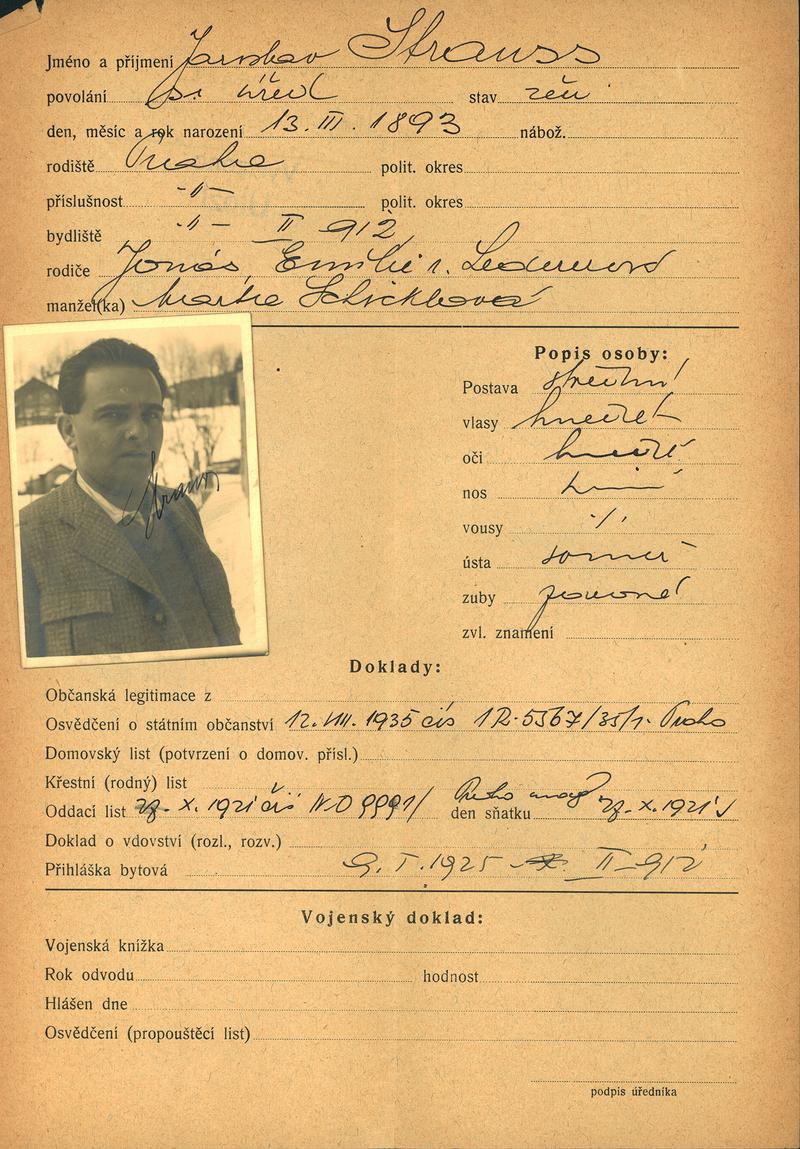 Jméno a příjmení Jaroslav Strauss
povolání s. úřed stav žen
den, měsíc a rok narození 13. III. 1893 nábož.
rodiště Praha polit. okres
příslušnost -"- polit. okres
bydliště -"- II 912
rodiče Jonáš, Emilie r. Ledererová
manžel(ka) Marta Schicklová
Popis osoby:
Postava střední
vlasy hnědé
oči hnědé
nos
vousy ./.
ústa souměr
zuby
zvl. znamení
Strauss
Doklady:
Občanská legitimace z
Osvědčení o státním občanství 12. VIII. 1935 čís 1R-5567/35/1. Praha
Domovský list (potvrzení o domov. přísl.)
Křestní (rodný) list
Oddací list X. 1921 čís 9991/ Praha den sňatku X. 1921
Doklad o vdovství (rozl., rozv.)
Přihláška bytová 9. I. 1925 II-912
Vojenský doklad:
Vojenská knížka
Rok odvodu hodnost
Hlášen dne
Osvědčení (propouštěcí list)
podpis úředníka